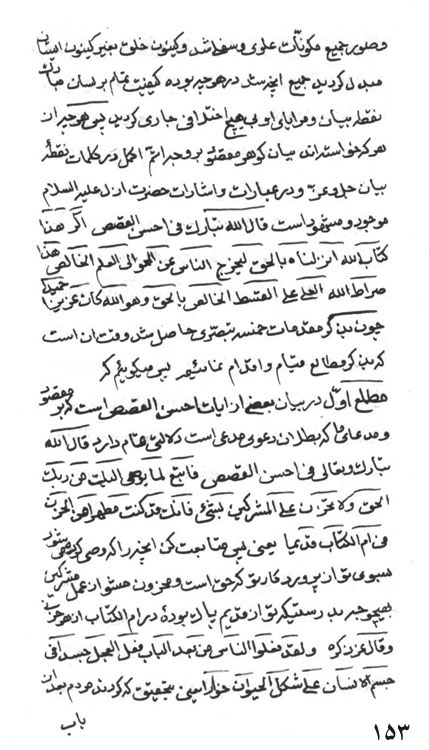 و صور جمیع مکوّنات علوی و سفلی شد و کینونت خلق بغیر کینونت انسان
مبدل کردید جمیع آنچه ستر در هوحیه بوده کیفیت تمام بر لسان مبارك
نقطه بیان و مرایای او بی هیچ اختلافی جاری کردید پس هر چه از
هر که خواسته‌اند بیان که هو مقصود بر وجه اتم اکمل در کلمات نقطهٔ
بیان جل و عز و در عبارات و اشارات حضرت ازل علیه السلام
موجود و مشهود است قال الله تبارك فی احسن القصص اکر هذا
کتاب الله انزلناه بالحق لیخرج الناس عن الهوی الی العلم الخالص هذا
صراط الله العلی علی القسط الخالص بالحق و هو الله کان عزیزا حمیدا
چون بذکر مقدمات خمسه تبصری حاصل شد وقت آن است
که بذکر مطالع قیام و اقدام نمائیم پس میکوئیم که
مطلع اوّل در بیان بعضی از ایات احسن القصص است که بر مقصود
و مدعای ما که بطلان دعوی مدعی است دلالتی تمام دارد قال الله
تبارك و تعالی فی احسن القصص فاتبع لما یوحی الیك من ربك
الحق و لا تحزن علی المشرکین بشیء فانك قد کنت مطهرا عن الحزن
فی ام الکتاب قدیما یعنی پس متابعت کن آنچیز را که وحی کرده میشود
بسوی تو از پروردکار تو که حق است و محزون مشو از عمل مشرکین
بهیچوجه بدرستیکه تو از قدیم پاك بودهٔ در ام الکتاب از هر حزنی
و قال عز ذکره و لقد فعلوا الناس من بعد الباب فعل العجل جسدا فی
جسم الانسان علی شکل الحیوان خوار یعنی بتحقیق که کردند مردم بعد از
باب
۱۵۳